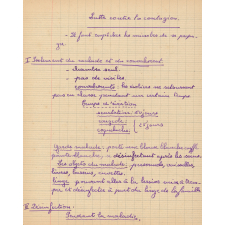 Lutte contre la contagion.
- Il faut empêcher les microbes de se propa-
ger.
I Isolement du malade et du convalescent
- Chambre seul.
- pas de visites.
convalescents: les écoliers ne retournent
pas en classe pendant un certain temps
Temps d'éviction
scarlatine 40 jours
rougeole
coqueluche
25 jours
Garde malade: porte une blouse blanche, coiffe
se désinfectant après les soins.
Les objets du malade: personnels,
livres, brosses, cuvettes.
Linge
et désinfecté à part du linge de la famille
II Désinfection:
Pendant la maladie.